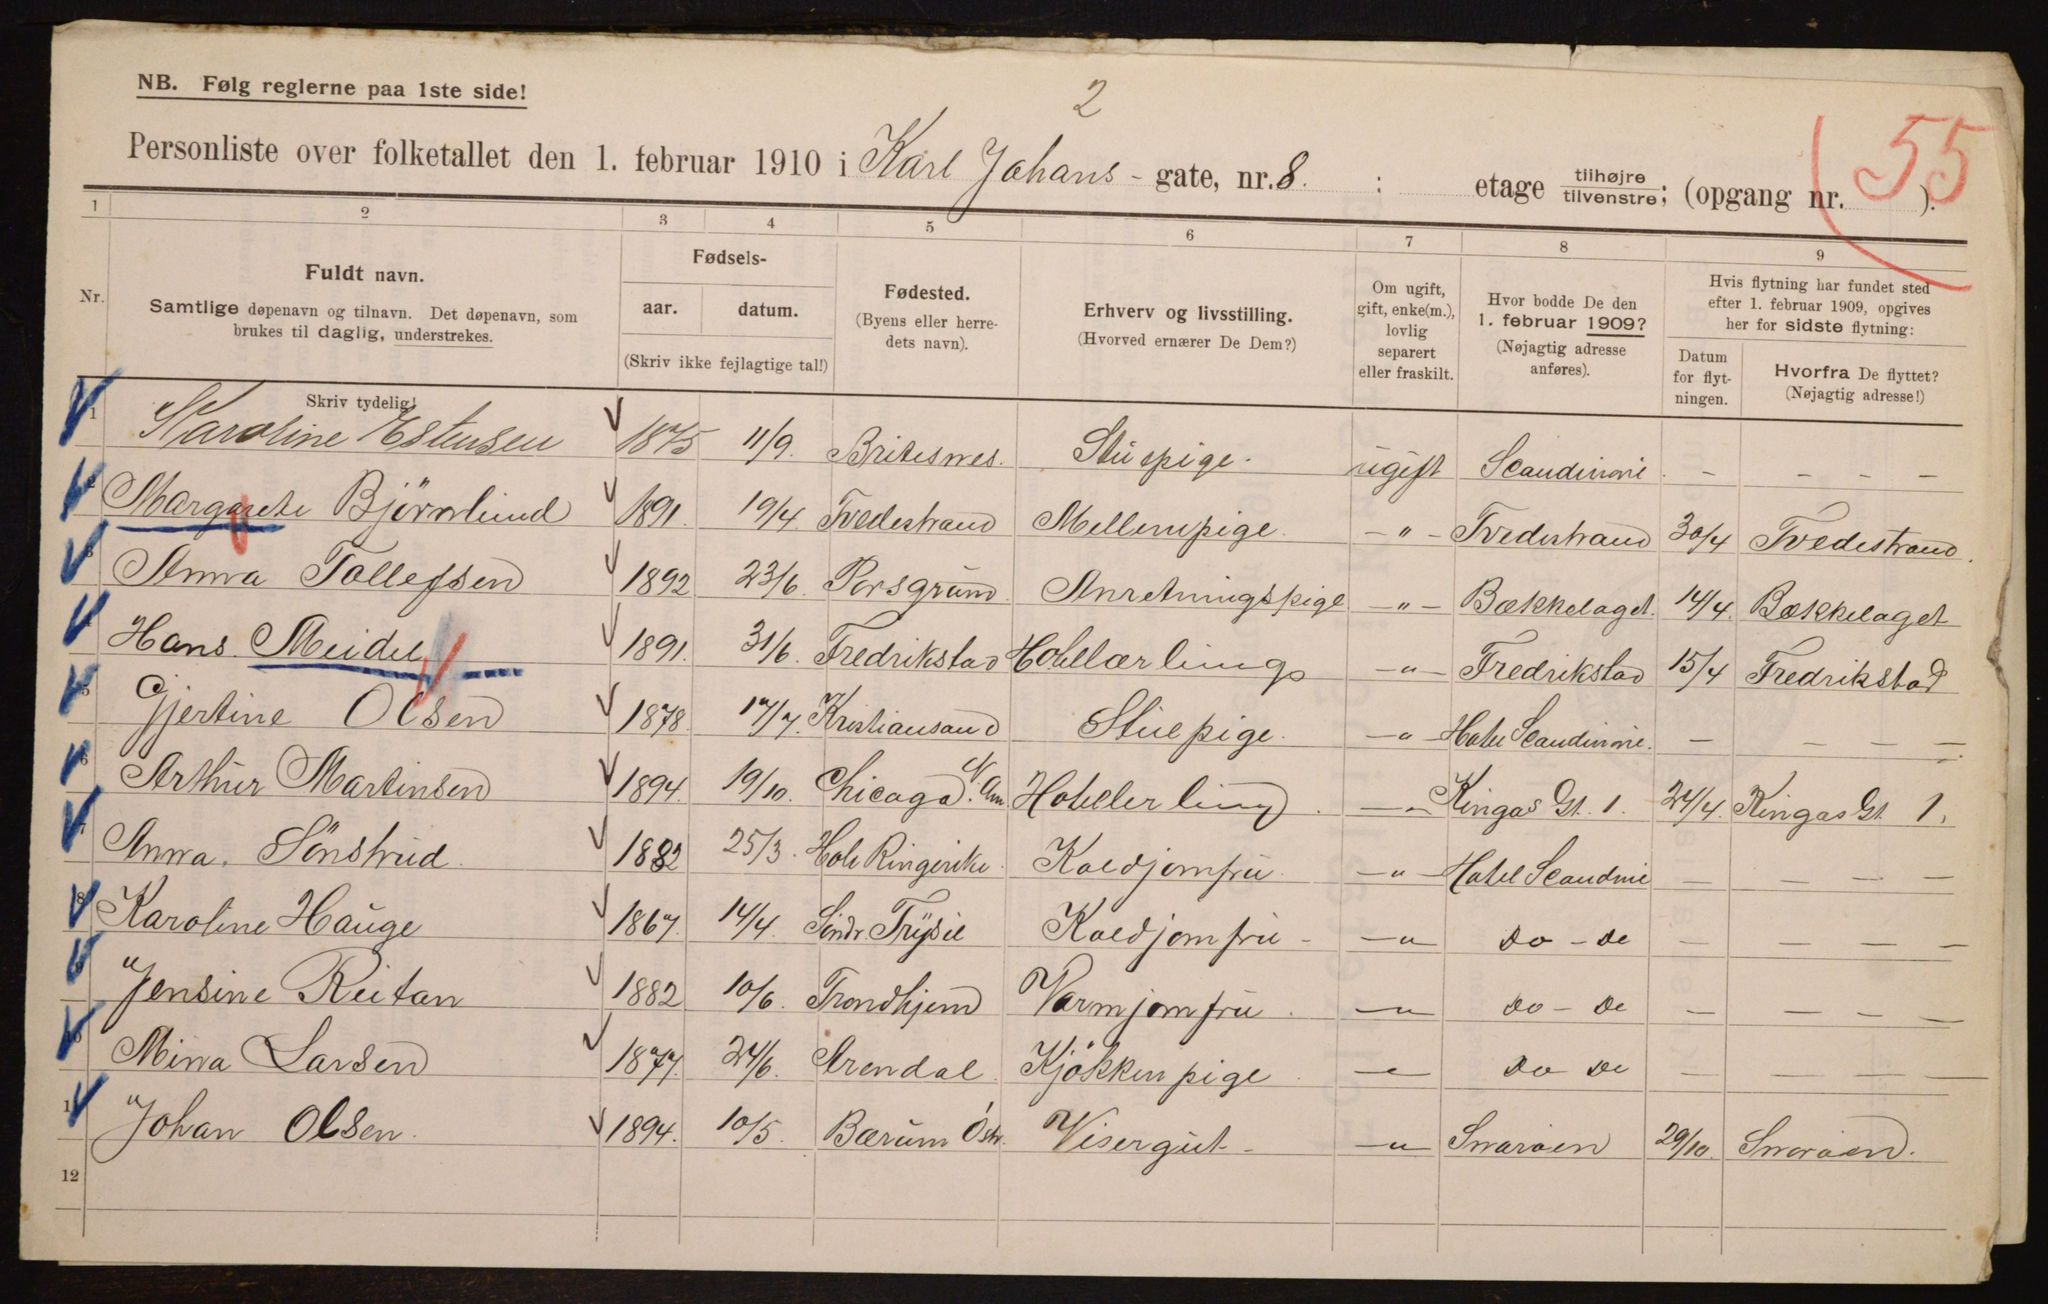 NB. Følg reglerne paa 1ste side!
2
55
Personliste over folketallet den 1. februar 1910 i Karl Johans - gate, nr. 8. : etage tilhøjre/tilvenstre; (opgang nr. ).
1 2 3 4 5 6 7 8 9
Nr.
Fuldt navn.
Samtlige døpenavn og tilnavn. Det døpenavn, som
brukes til daglig, understrekes.
Skriv tydelig!
Fødsels-
aar. datum.
(Skriv ikke fejlagtige tal!)
Fødested.
(Byens eller herre-
dets navn).
Erhverv og livsstilling.
(Hvorved ernærer De Dem?)
Om ugift,
gift, enke(m.),
lovlig
separert
eller fraskilt.
Hvor bodde De den
1. februar 1909?
(Nøjagtig adresse
anføres).
Hvis flytning har fundet sted
efter 1. februar 1909, opgives
her for sidste flytning:
Datum
for flyt-
ningen.
Hvorfra De flyttet?
(Nøjagtig adresse!)
1 Karoline Estensen 1875 11/9. Britesnes. Stuepige. ugift Scandinavie. - - - -
2 Margarete Björnlund 1891. 19/4. Tvedestrand Mellempige. -"- Tvedestrand 30/4 Tvedestrand.
3 Anna Tollefsen 1892 23/6. Porsgrund. Anretningspige -"- Bækkelaget. 14/4. Bækkelaget
4 Hans Meidel 1891. 31/6. Fredrikstad Hotellærling -"- Fredrikstad 15/4 Fredrikstad
5 Gjertine Olsen 1878. 17/7. Kristiansand Stuepige. -"- Hotel Scandinavie. - - - -
6 Arthur Martinsen 1894. 19/10. Chicago N. Am. Hotellerling. -"- Kingos Gt. 1. 24/4. Kingos Gt 1.
7 Anna Sönstrud. 1882 25/3. Hole Ringerike. Koldjomfru. -"- Hotel Scandinavie - - - -
8 Karoline Hauge 1867. 14/4. Söndr Trysil Koldjomfru - -"- do - de - - - -
9 Jensine Reitan 1882 10/6. Trondhjem Varmjomfru. -"- do - de - - - -
10 Mina Larsen 1877. 24/6. Arendal. Kjökkenpige -"- do de - - - -
11 Johan Olsen. 1894. 10/5. Bærum Östr. Visergut - -"- Snaröen 29/10. Snaröen.
12